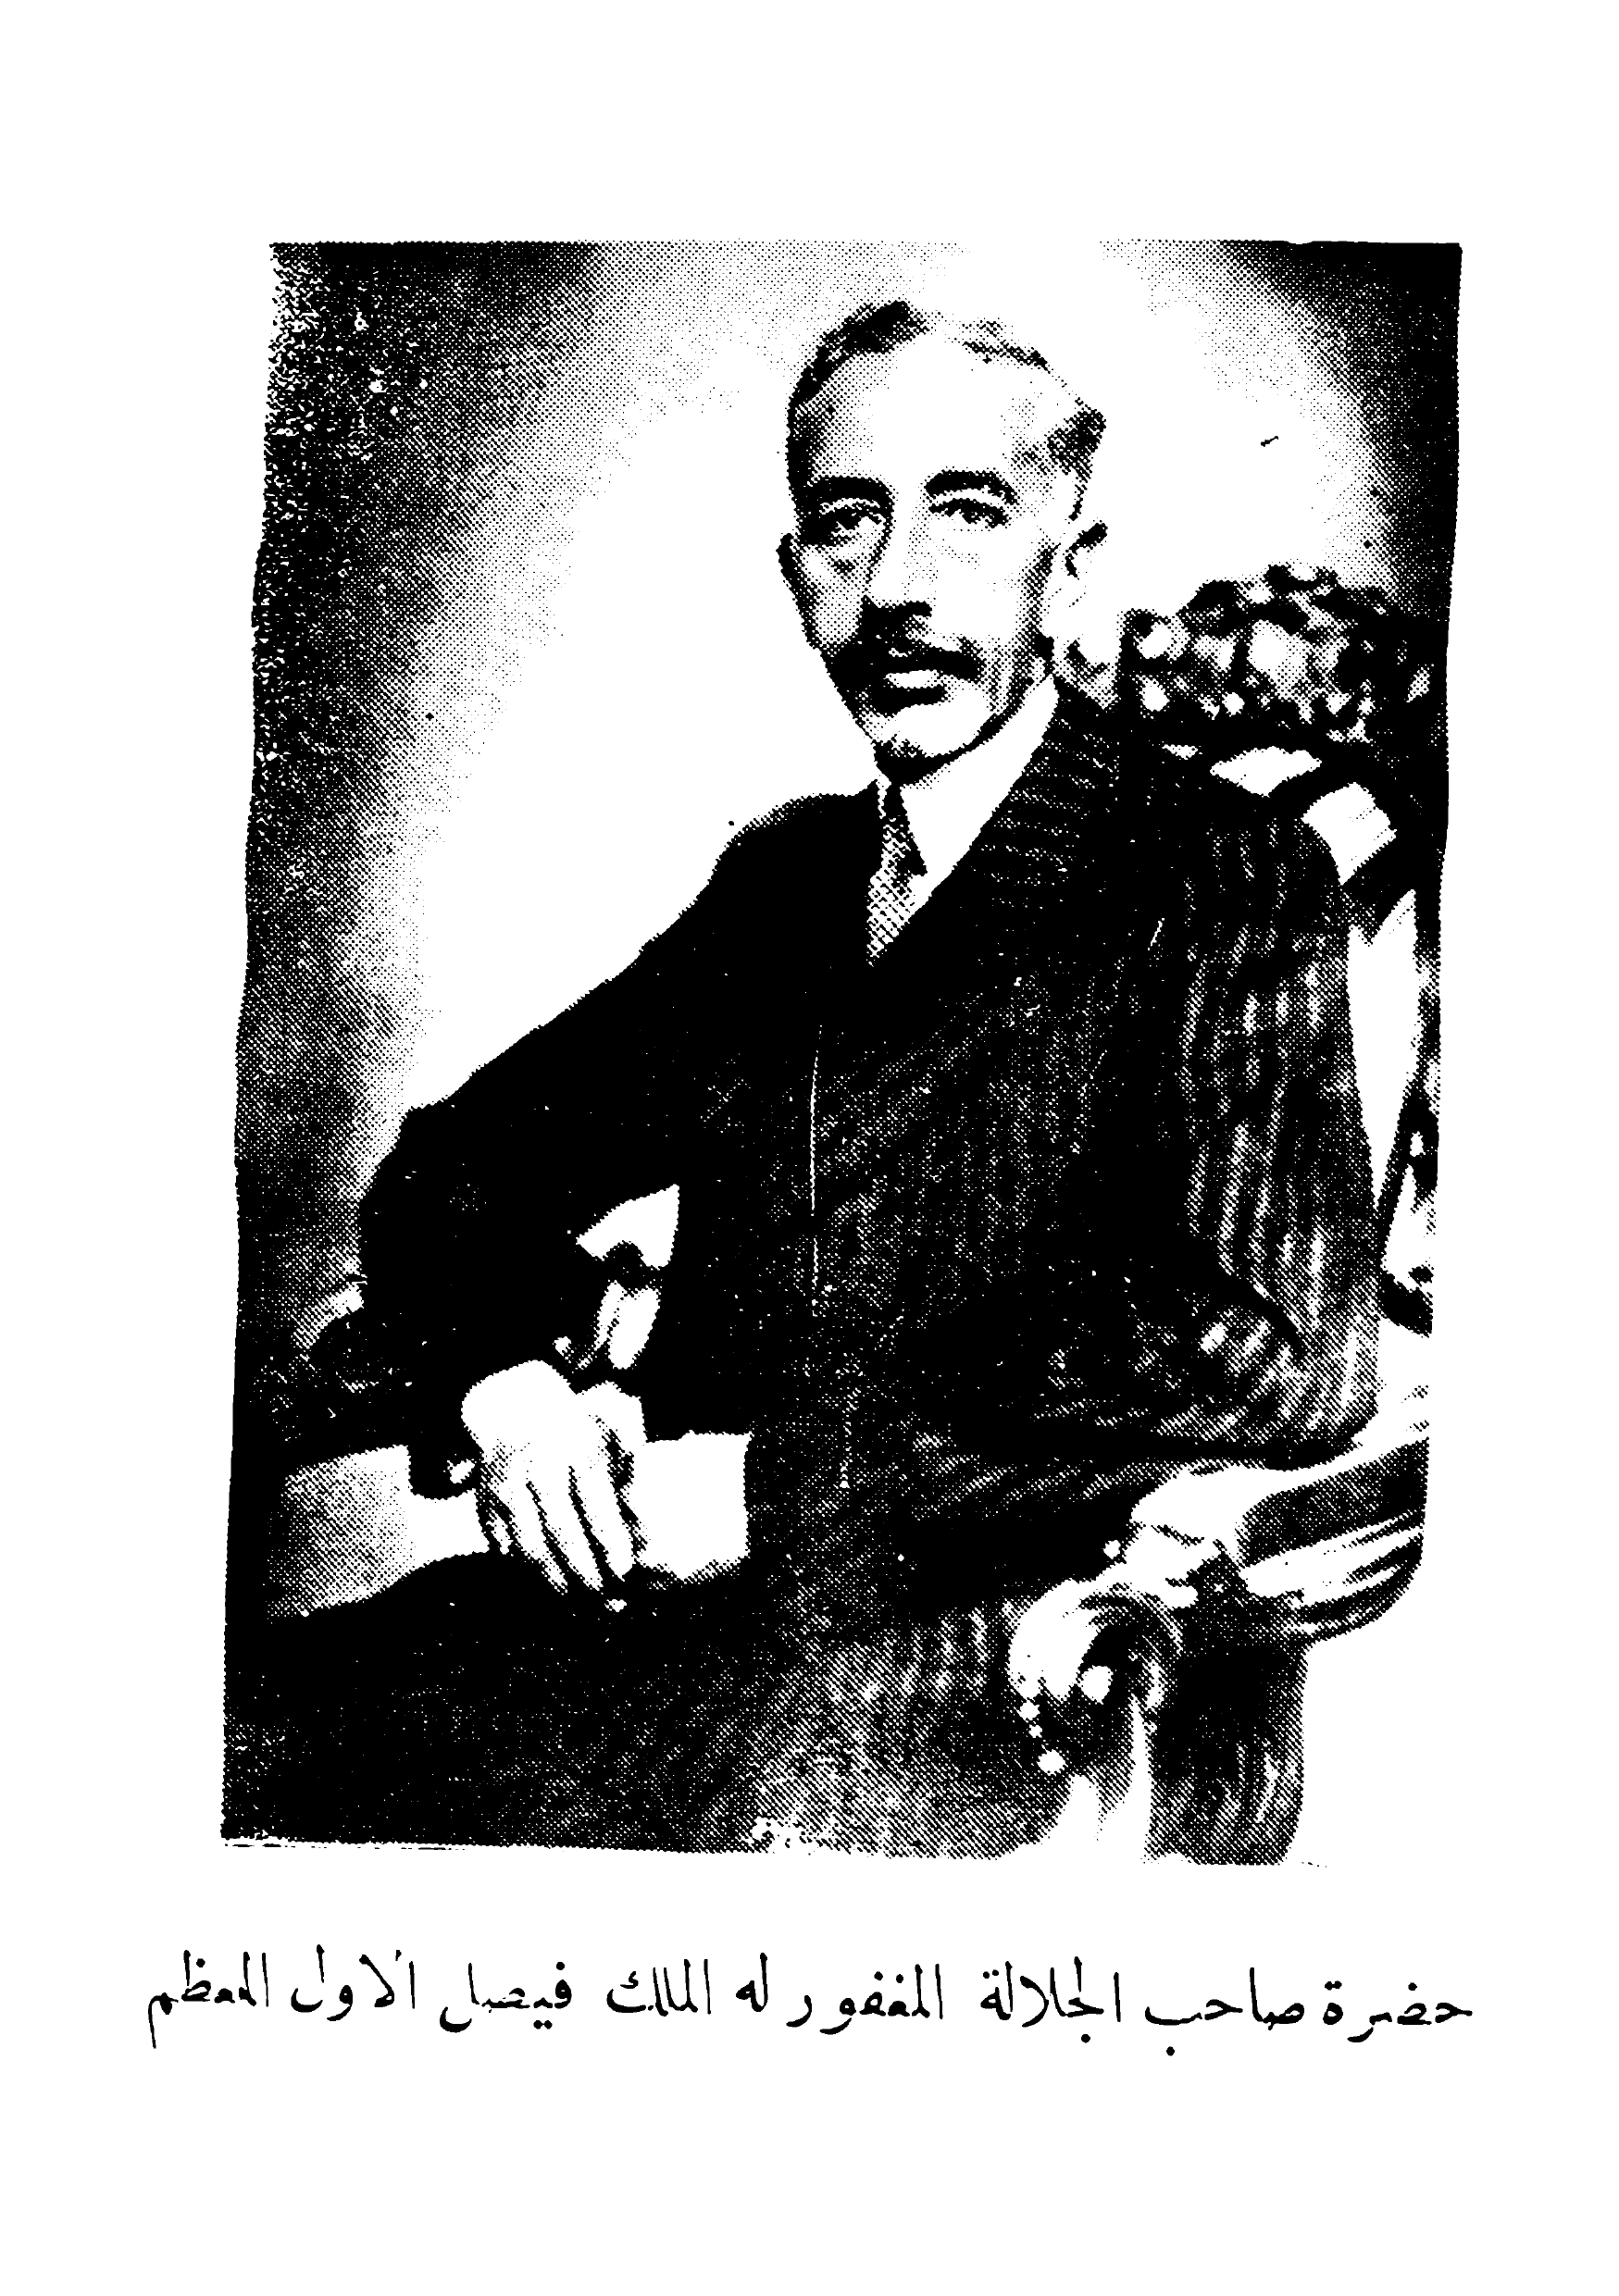 حضرة صاحب الجلالة المغفور له الملك فيصل الاول المعظم